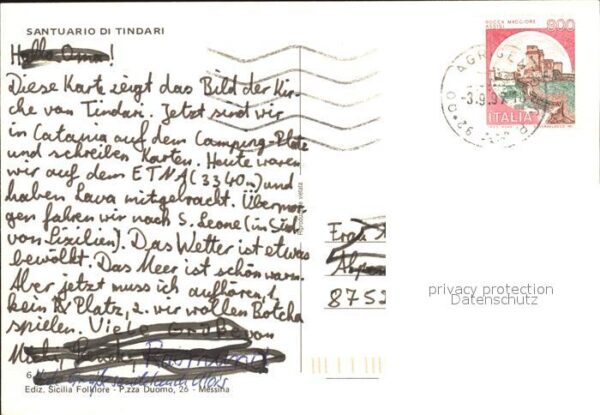 SANTUARIO DI TINDARI
Hallo Oma!
Diese Karte zeigt das Bild der Kir-
che von Tindari. Jetzt sind wir
in Catania auf dem Camping-Platz
und schreiben Karten. Heute waren
wir auf dem ETNA (3340m) und
haben Lava mitgebracht. Übermor-
gen fahren wir nach S. Leone (in Süd
von Sizilien). Das Wetter ist etwas
bewölkt. Das Meer ist schön warm.
Aber jetzt muss ich aufhören, 1.
kein Platz, 2. wir wollen Botcha
spielen. Viele Grüße von
Ediz. Sicilia Folklore - P.zza Duomo, 26 - Messina
ROCCA MAGGIORE
ASSISI
800
ITALIA
-3.9.9
8752
privacy protection
Datenschutz